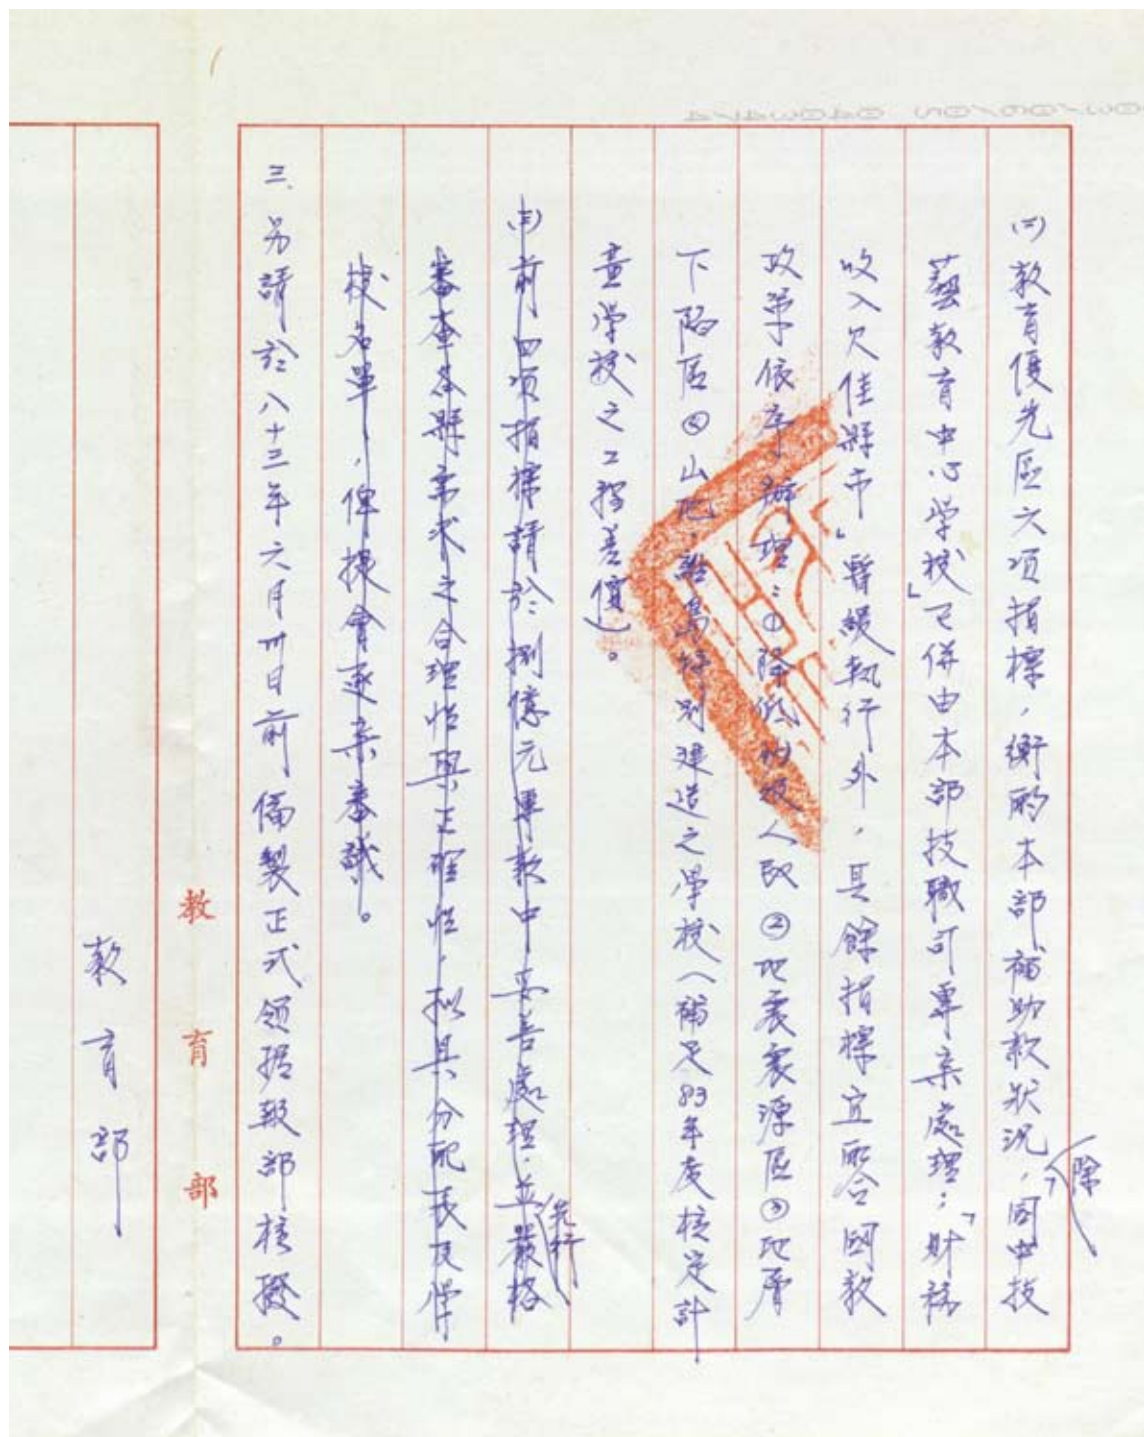 (二)教育優先區六項指標,衡酌本部補助款狀況,除「國中技
藝教育中心學校」已併由本部技職司專案處理;「財稅
收入欠佳縣市」暫緩執行外,其餘指標宜配合國教
政策依序辦理:①降低班級人數②地震震源區③地層
下陷區④山地、離島特別建造之學校(補足83年度核定計
畫學校之工程差價)。
(三)前四項指標請於捌億元專款中妥善處理,並先行嚴格
審查各縣需求之合理性與正確性,擬具分配表及學
校名單,俾提會逐案審議。
三、另請於八十三年六月卅日前備製正式領据報部核撥。
教育部
教育部